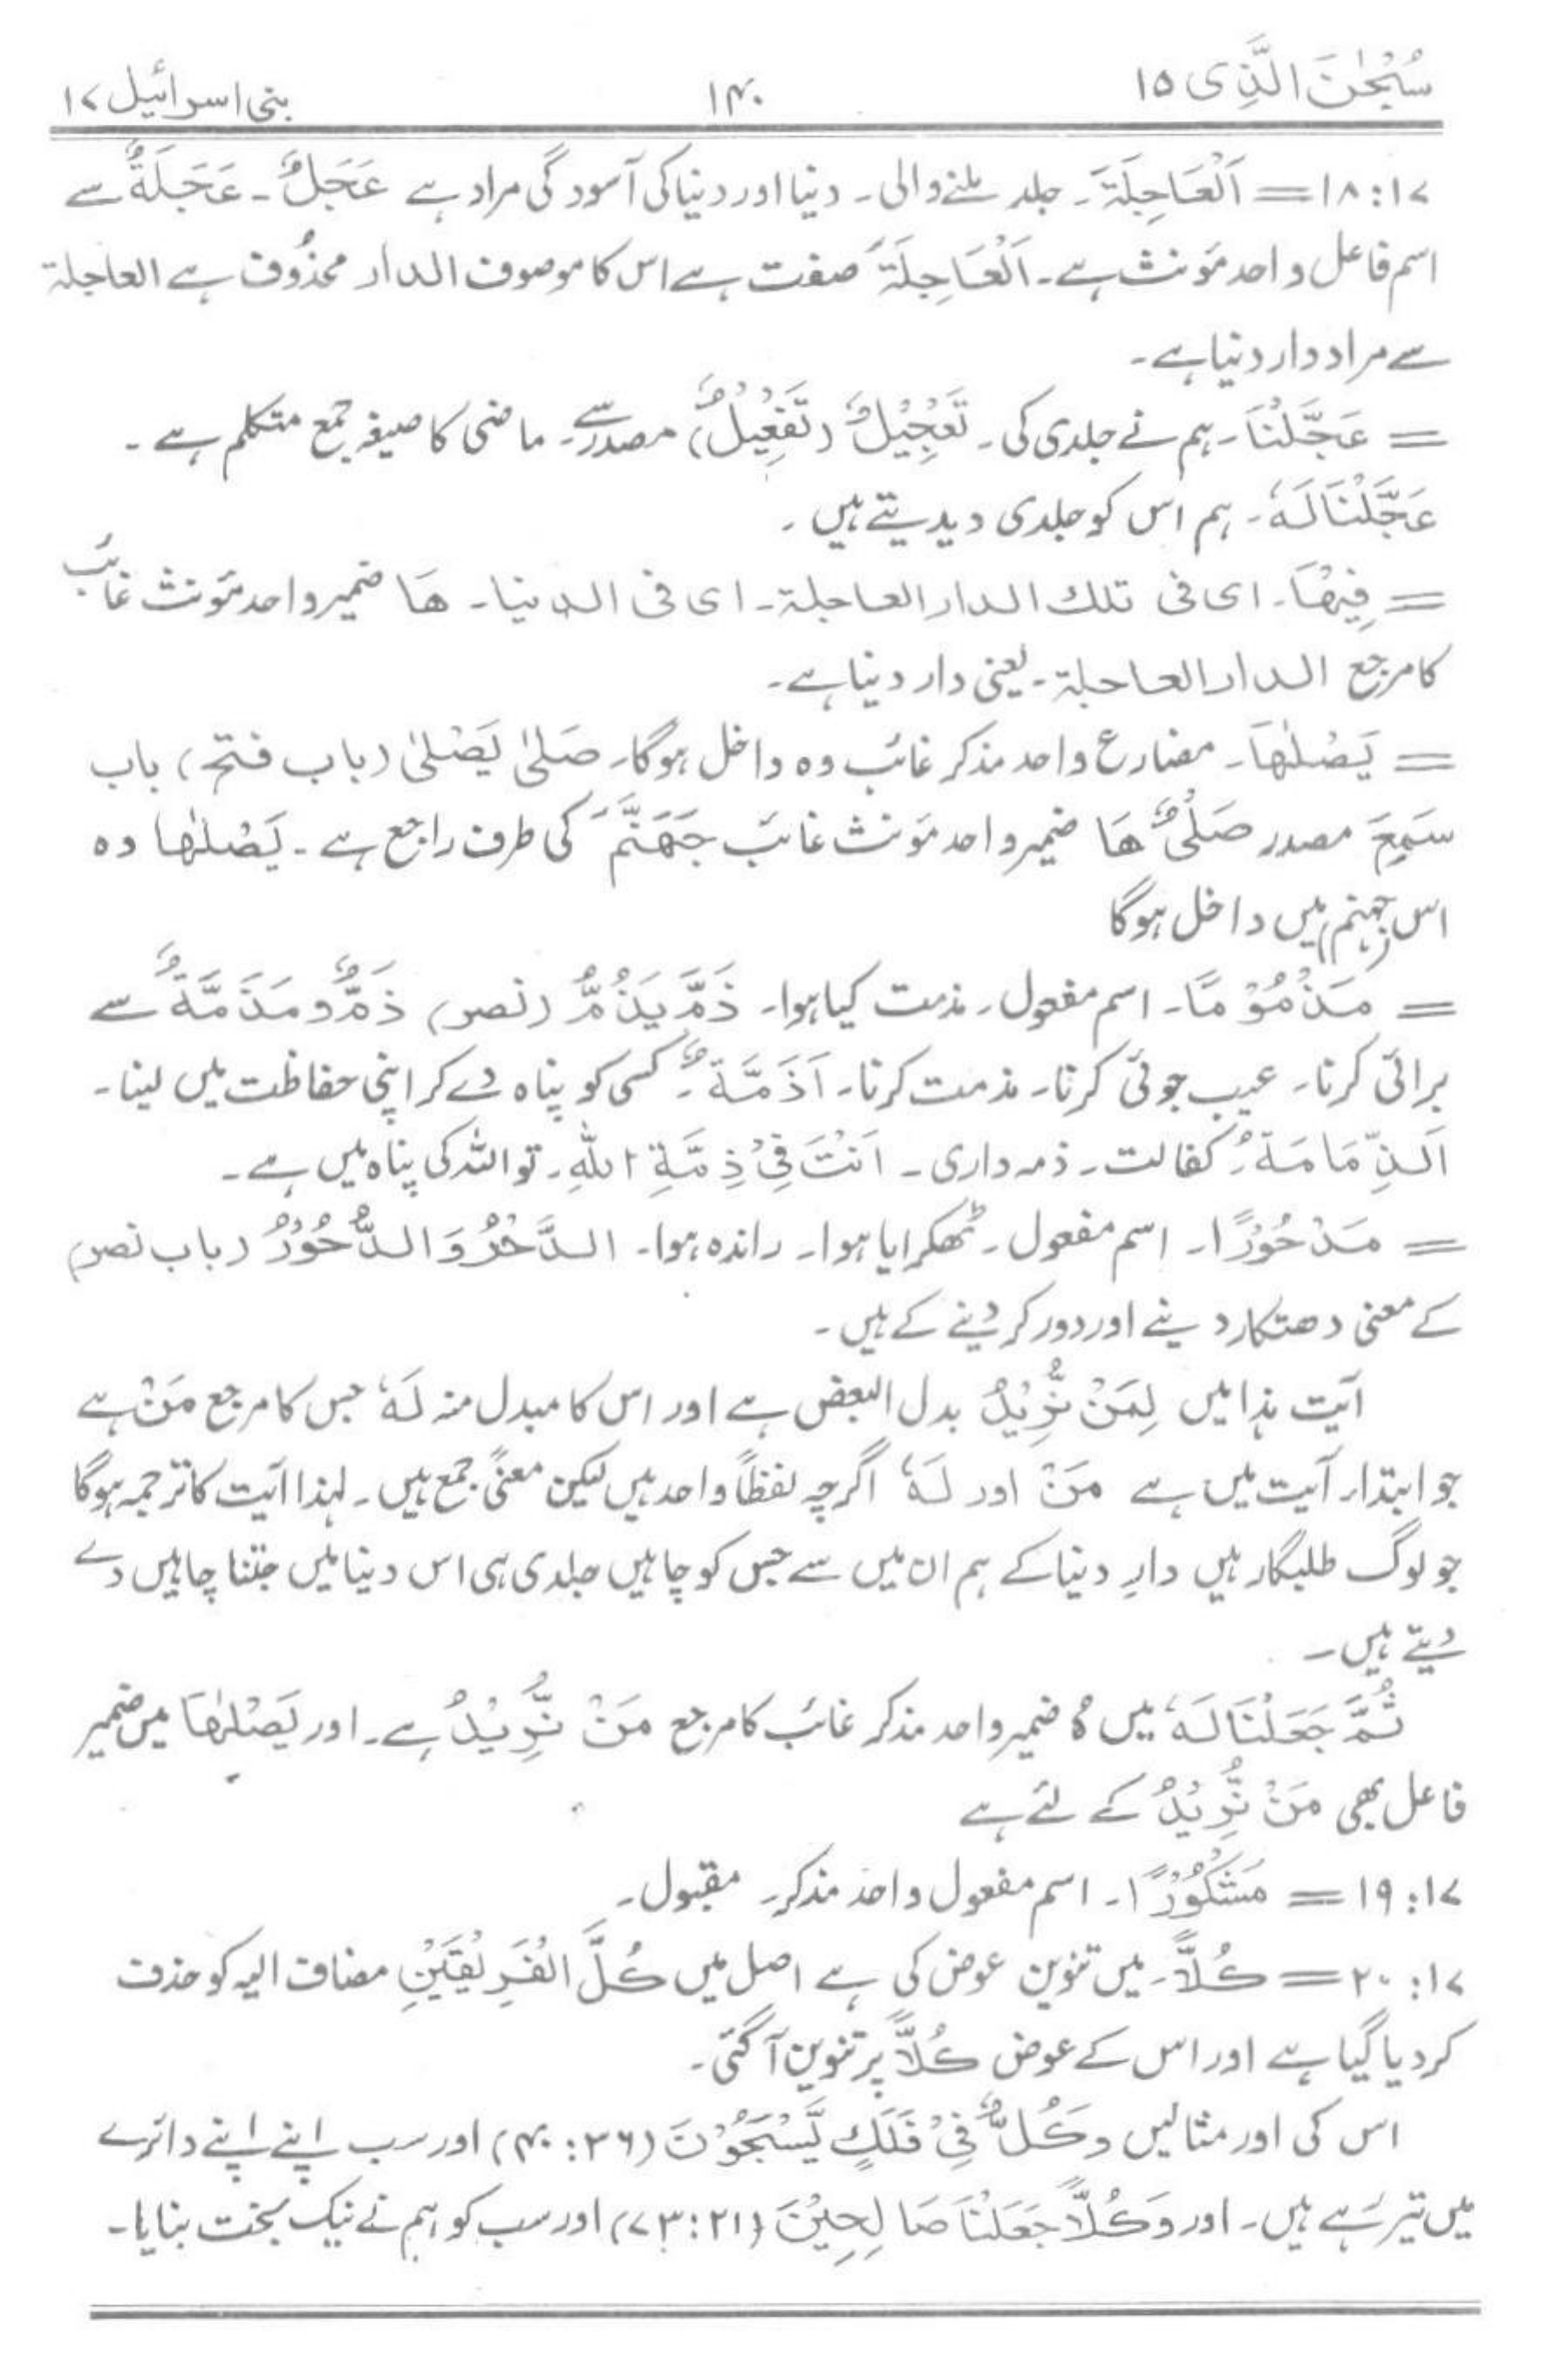 سُبْحٰنَ الَّذِی ۱۵ ۱۴۰ بنی اسرائیل ۱۷
۱۷:۱۸= اَلْعَاجِلَۃَ۔ جلد ملنے والی۔ دنیا اور دنیا کی آسودگی مراد ہے عَجَلٌ۔ عَجَلَۃٌ سے
اسم فاعل واحد مؤنث ہے۔ اَلْعَاجِلَۃَ صفت ہے اس کا موصوف الدار محذُوف ہے العاجلۃ
سے مراد دار دنیا ہے۔
= عَجَّلْنَا۔ ہم نے جلدی کی۔ تَعْجِیْلٌ (تَفْعِیْلٌ) مصدر سے۔ ماضی کا صیغہ جمع متکلم ہے۔
عَجَّلْنَا لَہٗ۔ ہم اس کو جلدی دیدیتے ہیں۔
= فِیْھَا۔ ای فی تلک الدار العاجلۃ۔ ای فی الدنیا۔ ھَا ضمیر واحد مؤنث غائب
کا مرجع الدار العاجلۃ۔ یعنی دار دنیا ہے۔
= یَصْلٰھَا۔ مضارع واحد مذکر غائب وہ داخل ہوگا۔ صَلیٰ یَصْلیٰ (باب فتح) باب
سَمِعَ مصدر صَلْیٌ ھَا ضمیر واحد مؤنث غائب جَھَنَّمَ کی طرف راجع ہے۔ یَصْلٰھا وہ
اس (جہنم) میں داخل ہوگا
= مَذْمُوْمًا۔ اسم مفعول۔ مذمت کیا ہوا۔ ذَمَّ یَذُمُّ (نصر) ذَمٌّ وَ مَذَمَّۃٌ سے
برائی کرنا۔ عیب جوئی کرنا۔ مذمت کرنا۔ اَذَمَّۃٌ۔ کسی کو پناہ دے کر اپنی حفاظت میں لینا۔
اَلذِّمَامَۃُ۔ کفالت۔ ذمہ داری۔ اَنْتَ فِیْ ذِمَّۃِ اللّٰہِ۔ تو اللہ کی پناہ میں ہے۔
= مَدْحُوْرًا۔ اسم مفعول۔ ٹھکرایا ہوا۔ راندہ ہوا۔ الدَّحْرُ وَالدُّحُوْرُ (باب نصر)
کے معنی دھتکار دینے اور دور کر دینے کے ہیں۔
آیت ہذا میں لِمَنْ نُّرِیْدُ بدل البعض ہے اور اس کا مبدل منہ لَہٗ جس کا مرجع مَنْ ہے
جو ابتدار آیت میں ہے مَنْ اور لَہٗ اگرچہ لفظاً واحد ہیں لیکن معنًی جمع ہیں۔ لہٰذا آیت کا ترجمہ ہوگا
جو لوگ طلبگار ہیں دارِ دنیا کے ہم ان میں سے جس کو چاہیں جلدی ہی اس دنیا میں جتنا چاہیں دے
دیتے ہیں۔
ثُمَّ جَعَلْنَا لَہٗ میں ہٗ ضمیر واحد مذکر غائب کا مرجع مَنْ نُّرِیْدُ ہے۔ اور یَصْلٰھَا میں ضمیر
فاعل بھی مَنْ نُّرِیْدُ کے لئے ہے
۱۷:۱۹= مَشْکُوْرًا۔ اسم مفعول واحد مذکر۔ مقبول۔
۱۷:۲۰= کُلًّا۔ میں تنوین عوض کی ہے اصل میں کُلَّ الْفَرِیْقَیْنِ مضاف الیہ کو حذف
کر دیا گیا ہے اور اس کے عوض کُلًّا پر تنوین آگئی۔
اس کی اور مثالیں وَکُلٌّ فِیْ فَلَکٍ یَّسْبَحُوْنَ (۳۶:۴۰) اور سب اپنے اپنے دائرے
میں تیر رہے ہیں۔ اور وَکُلًّا جَعَلْنَا صَالِحِیْنَ (۲۱:۷۳) اور سب کو ہم نے نیک بخت بنایا۔